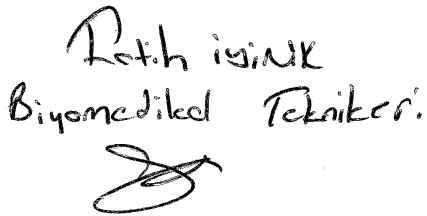 Fatih iyiNiK
Biyomedikal Teknikeri